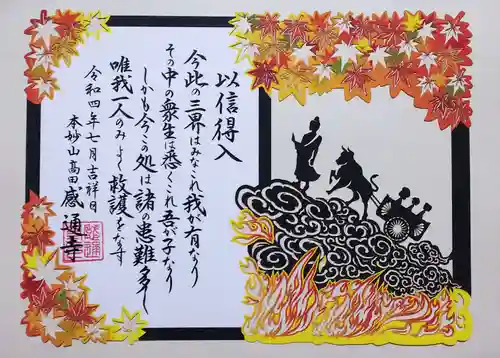 以信得入
今此の三界はみなこれ我が有なり
その中の衆生は悉くこれ吾が子なり
しかも今この処は諸の患難多し
唯我一人のみよく救護をなす
令和四年七月吉祥日
本妙山高田感通寺